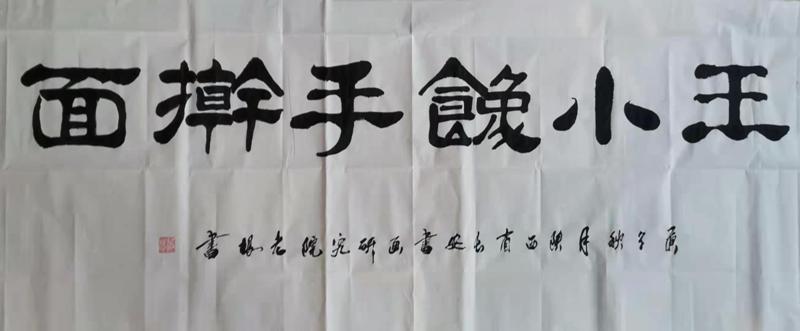 王小馋手擀面
庚子秋月陕西省长安书画研究院老杨书